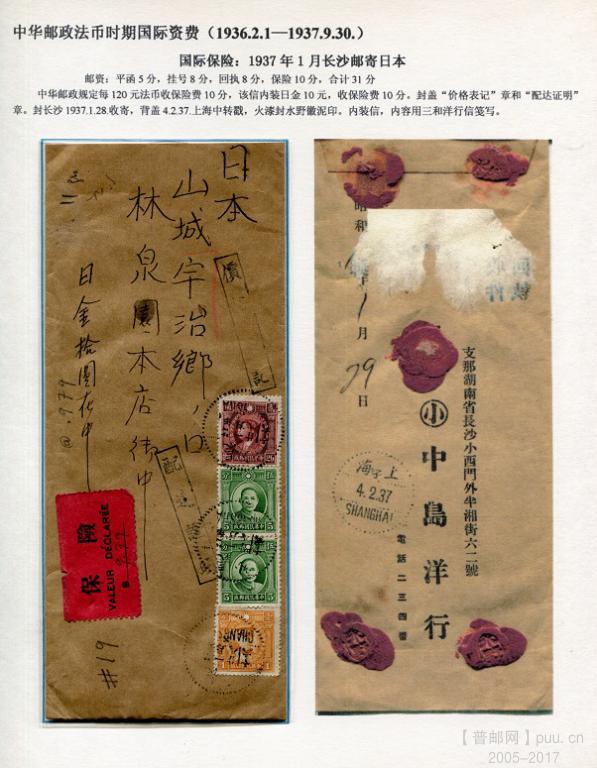 中华邮政法币时期国际资费（1936.2.1—1937.9.30.）
国际保险：1937 年 1 月长沙邮寄日本
邮资：平函 5 分，挂号 8 分，回执 8 分，保险 10 分，合计 31 分
中华邮政规定每 120 元法币收保险费 10 分，该信内装日金 10 元，收保险费 10 分。封盖“价格表记”章和“配达证明”
章。封长沙 1937.1.28.收寄，背盖 4.2.37.上海中转戳，火漆封水野徽泥印。内装信，内容用三和洋行信笺写。
日本
山城宇治鄉
林泉園本店御中
日金拾圓在中
@.979
記
配達
保險
VALEUR DÉCLARÉE
979
#19
5
5
1
昭和
年1月29日
支那湖南省長沙小西門外半湘街六二號
小中島洋行
電話二三四番
上海
4.2.37
SHANGHAI
【普邮网】puu.cn
2005-2017